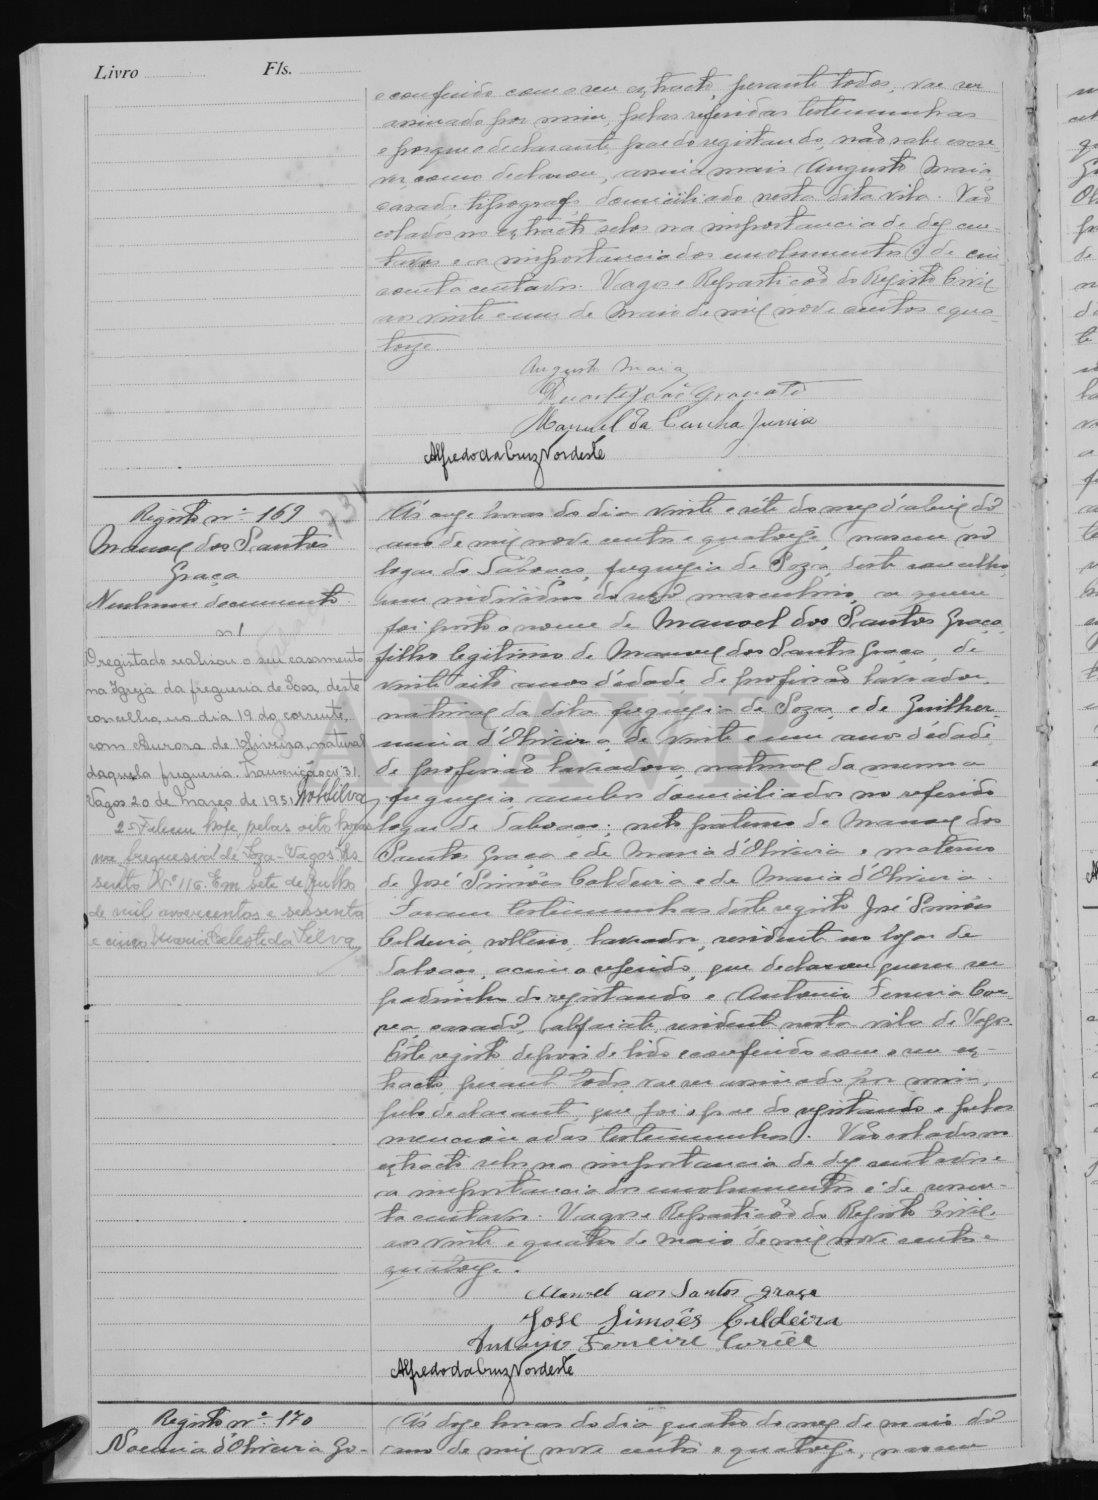 Livro Fls.
e conferido com o seu extracto, perante todos, vae ser
assinado por mim, pelas referidas testemunhas
e porque o declarante, pae do registando, não sabe escre-
ver, como declarou, assina mais Augusto Maia,
casado, tipografo, domiciliado nesta dita vila. Vão
colados no extracto selos na importancia de dez cen-
tavos e a importancia dos emolumentos é de cin-
coenta centavos. Vagos e Repartição do Registo Civil,
aos vinte e um de Maio de mil nove centos e qua-
torze.
Augusto Maia
Manuel da Cunha Junior
Alfredo da Cruz Nordeste
Registo nº 169
Manoel dos Santos
Graça
Nenhum documento
nº 1
O registado realizou o seu casamento
na Igreja da freguesia de Soza, deste
concelho, no dia 19 do corrente,
com Aurora de Oliveira, natural
daquela freguesia. Transcrição nº 31.
Vagos 20 de Março de 1951.
2º Faleceu hoje pelas oito horas
na freguesia de Soza-Vagos. As-
sento Nº 116. Em sete de Julho
de mil novecentos e sessenta
e cinco. Maria Celeste da Silva
Ás onze horas do dia vinte e sete do mez d'abril do
ano de mil nove centos e quatorze, nasceu no
logar do Salvaço, freguezia de Soza, deste concelho,
um individuo do sexo masculino, a quem
foi posto o nome de Manoel dos Santos Graça,
filho legitimo de Manoel dos Santos Graça, de
vinte oito anos d'edade, de profissão lavrador,
natural da dita freguezia de Soza, e de Guilher-
mina d'Oliveira, de vinte e um anos d'edade,
de profissão lavradora, natural da mesma
freguezia, ambos domiciliados no referido
logar de ; neto paterno de Manoel dos
Santos Graça e de Maria d'Oliveira e materno
de José Simões Caldeira e de Maria d'Oliveira.
Foram testemunhas deste registo José Simões
Caldeira, solteiro, lavrador, residente no logar de
, acima referido, que declarou querer ser
padrinho do registando e Antonio Ferreira Cor-
rea, casado, alfaiate, residente nesta vila de Vagos.
Este registo depois de lido e conferido com o seu ex-
tracto, perante todos vae ser assinado por mim,
pelo declarante, que foi o pae do registando e pelas
mencionadas testemunhas. Vão colados no
extracto selos na importancia de dez centavos e
a importancia dos emolumentos é de cincoen-
ta centavos. Vagos e Repartição do Registo Civil,
aos vinte e quatro de maio de mil nove centos e
quatorze.
Manoel dos Santos Graça
José Simões Caldeira
Antonio Ferreira Corrêa
Alfredo da Cruz Nordeste
ADAVR
Registo nº 170
Noemia d'Oliveira Go-
Ás doze horas do dia quatro do mez de maio do
ano de mil nove centos e quatorze, nasceu